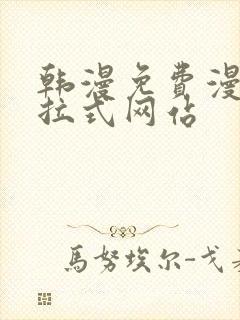 韩漫免费漫
拉式网站
馬努埃尔-戈